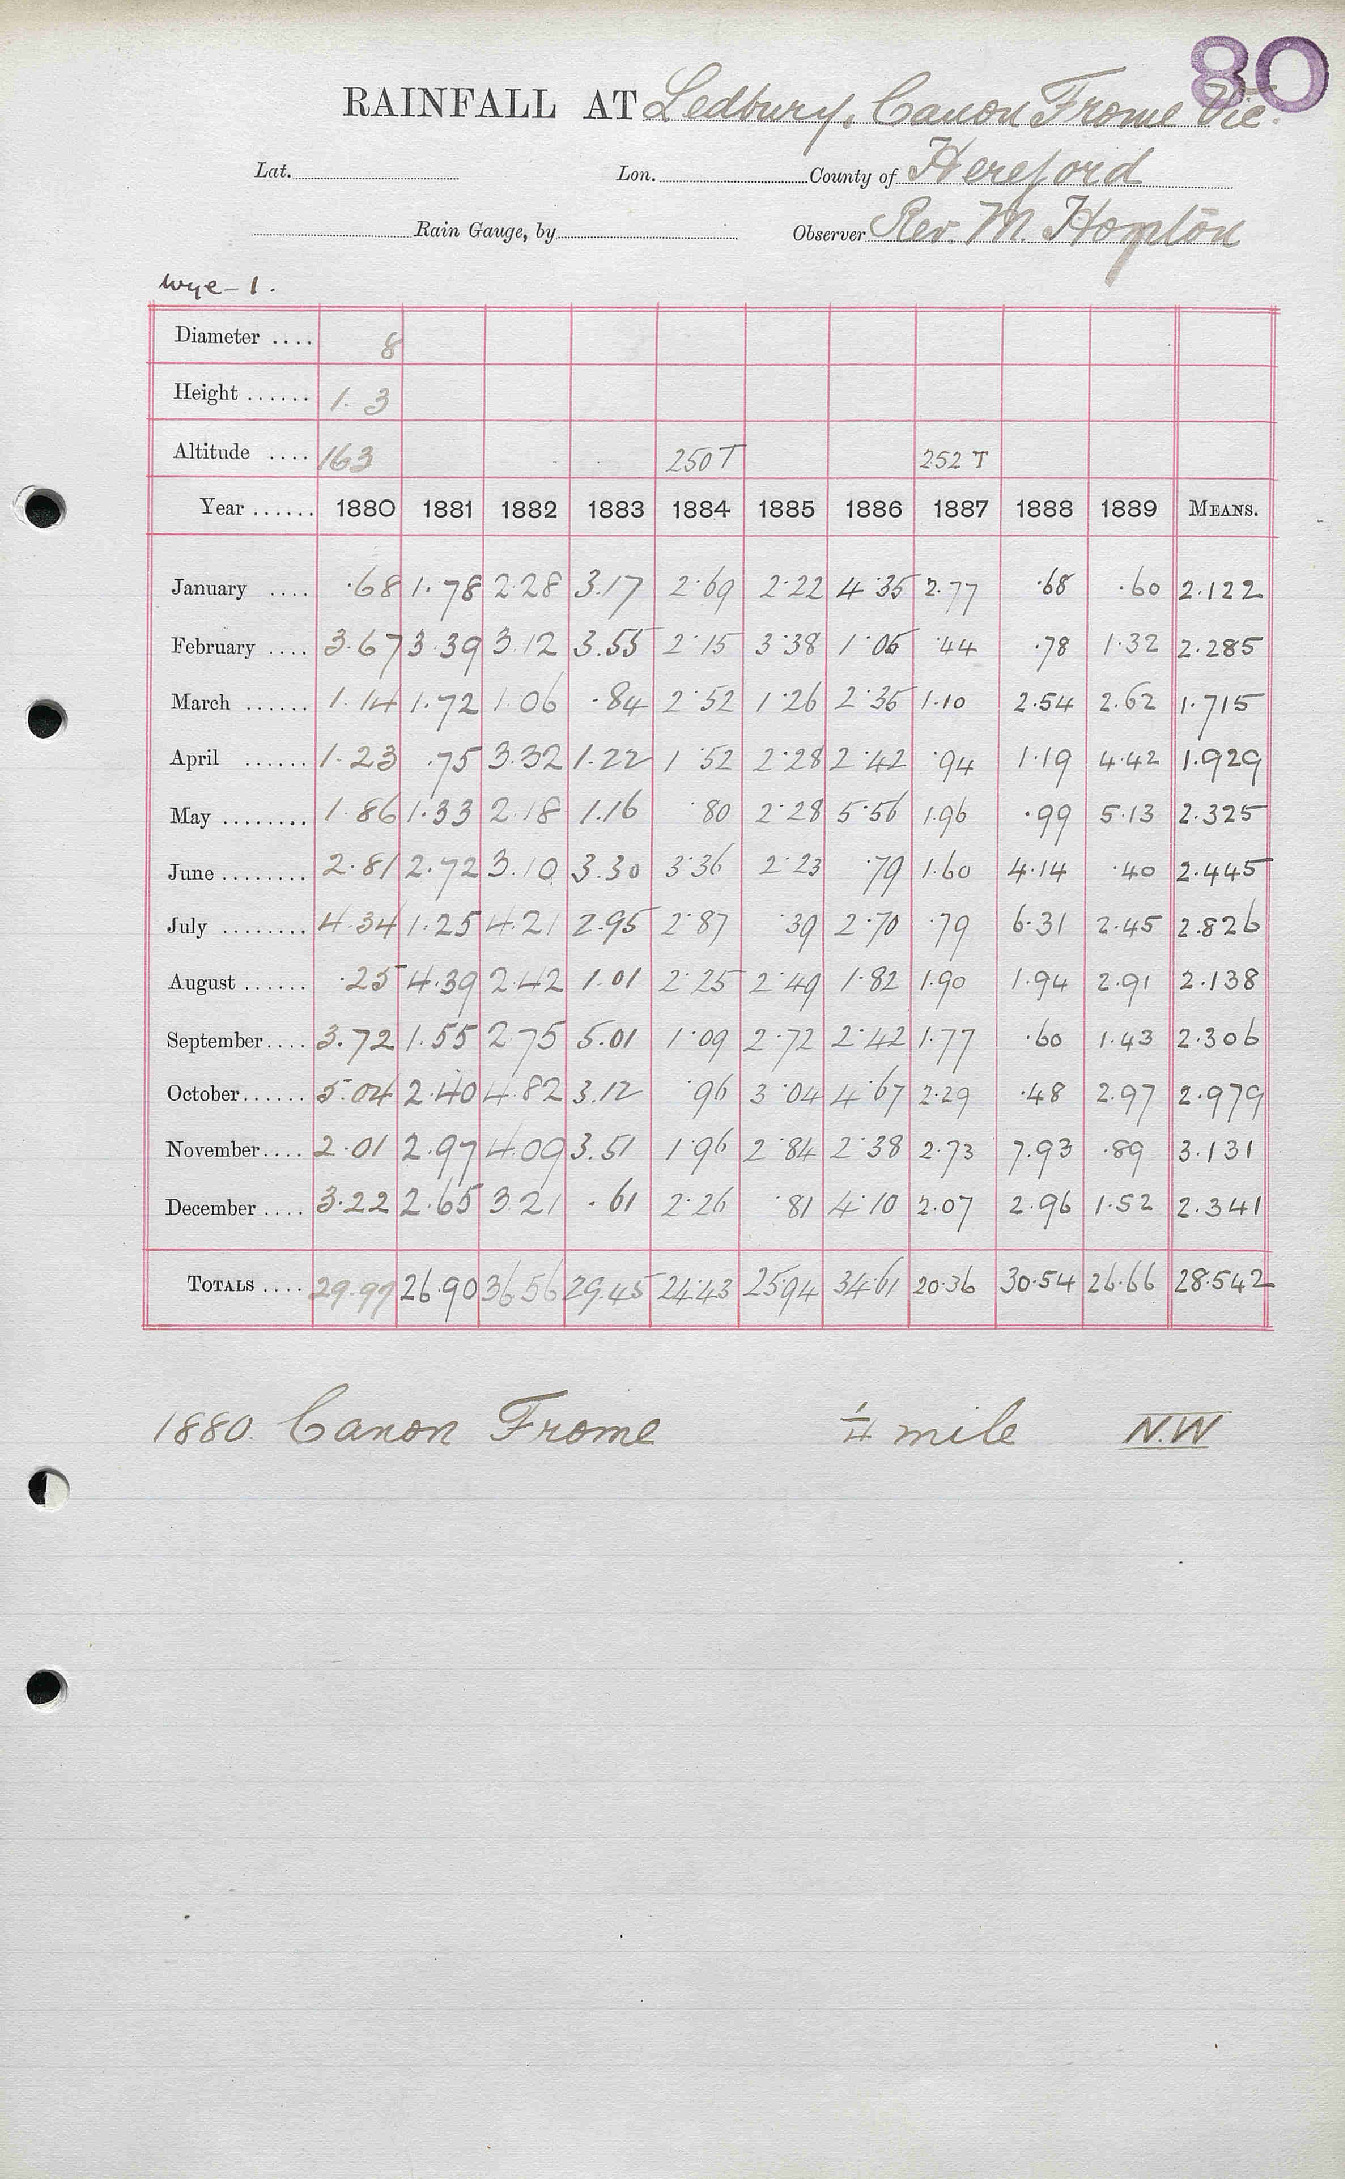 80
RAINFALL AT Ledbury, Canon Frome Vic.
Lat. Lon. County of Hereford
Rain Gauge, by Observer Rev. M. Hopton
Wye - 1.
Diameter .... 8
Height ...... 1. 3
Altitude .... 163 250 T 252 T
Year ...... 1880 1881 1882 1883 1884 1885 1886 1887 1888 1889 MEANS.
January .... .68 1.78 2.28 3.17 2.69 2.22 4.35 2.77 .68 .60 2.122
February .... 3.67 3.39 3.12 3.55 2.15 3.38 1.05 .44 .78 1.32 2.285
March ...... 1.14 1.72 1.06 .84 2.52 1.26 2.35 1.10 2.54 2.62 1.715
April ...... 1.23 .75 3.32 1.22 1.52 2.28 2.42 .94 1.19 4.42 1.929
May ........ 1.86 1.33 2.18 1.16 .80 2.28 5.56 1.96 .99 5.13 2.325
June ........ 2.81 2.72 3.10 3.30 3.36 2.23 .79 1.60 4.14 .40 2.445
July ........ 4.34 1.25 4.21 2.95 2.87 .39 2.70 .79 6.31 2.45 2.826
August ...... .25 4.39 2.42 1.01 2.25 2.49 1.82 1.90 1.94 2.91 2.138
September .... 3.72 1.55 2.75 5.01 1.09 2.72 2.42 1.77 .60 1.43 2.306
October ...... 5.04 2.40 4.82 3.12 .96 3.04 4.67 2.29 .48 2.97 2.979
November .... 2.01 2.97 4.09 3.51 1.96 2.84 2.38 2.73 7.93 .89 3.131
December .... 3.22 2.65 3.21 .61 2.26 .81 4.10 2.07 2.96 1.52 2.341
TOTALS .... 29.97 26.90 36.56 29.45 24.43 25.94 34.61 20.36 30.54 26.66 28.542
1880. Canon Frome 1/4 mile N.W